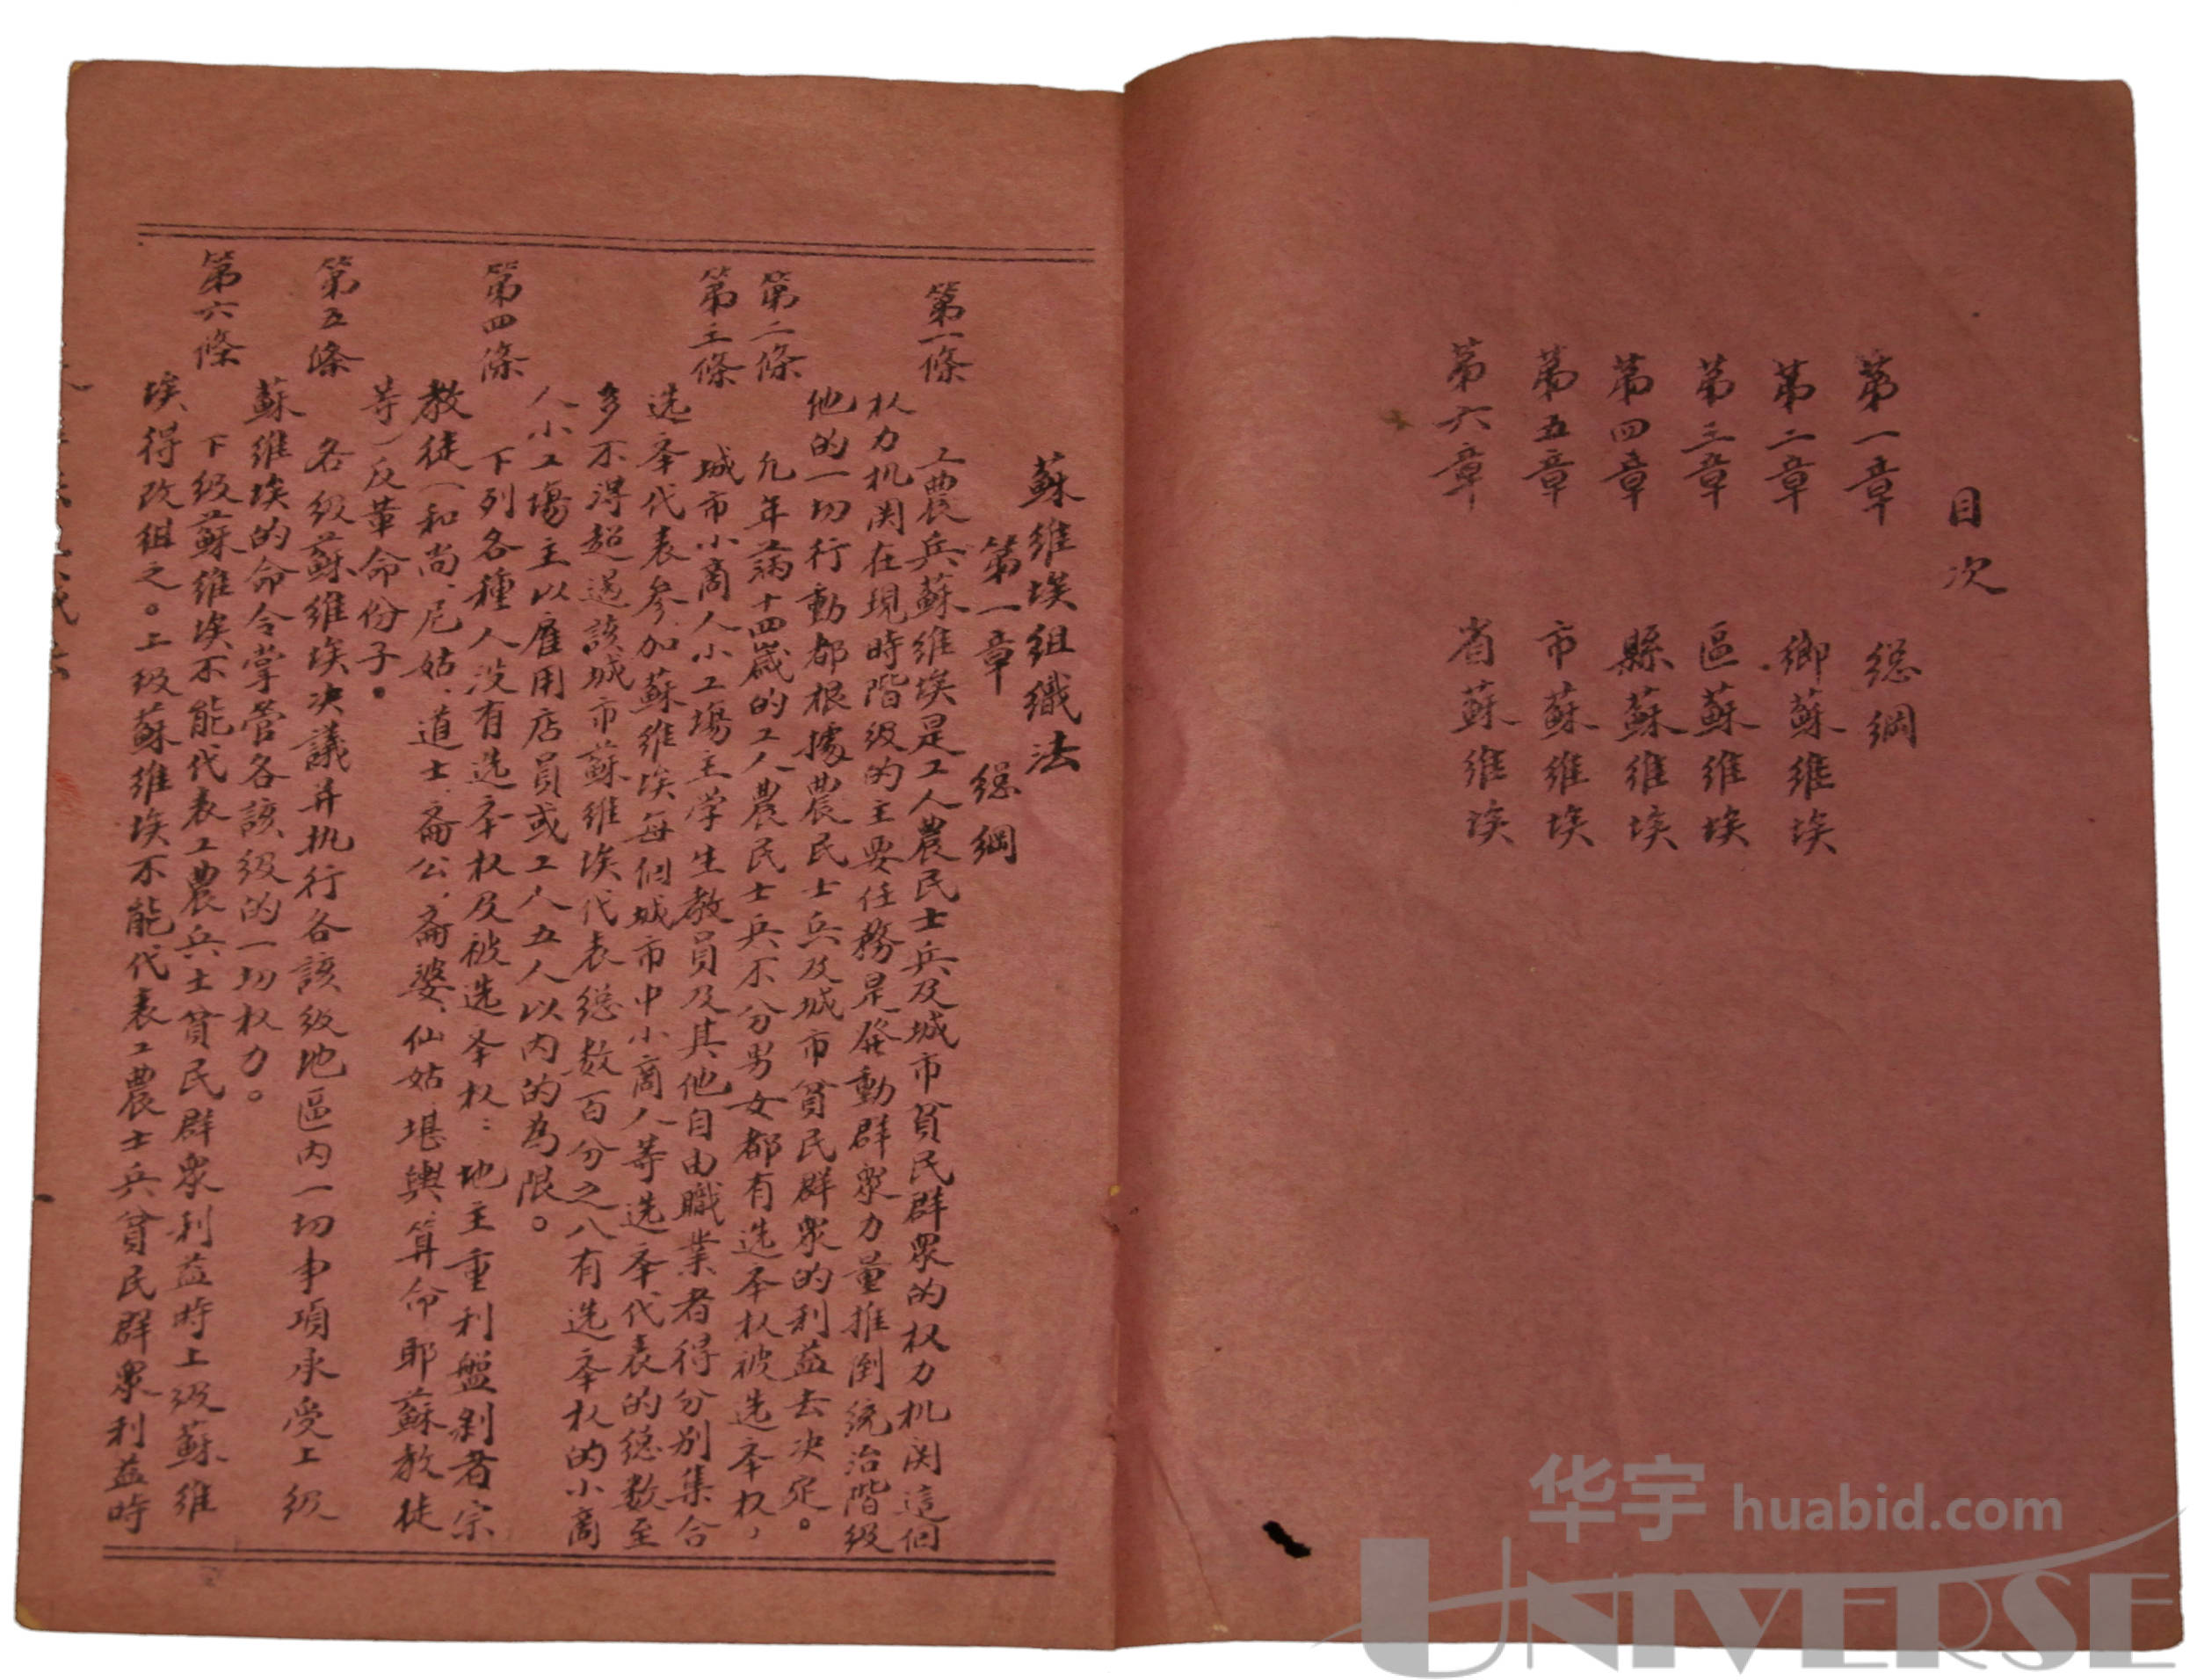 目次
第一章　総綱
第二章　鄉蘇維埃
第三章　區蘇維埃
第四章　縣蘇維埃
第五章　市蘇維埃
第六章　省蘇維埃
蘇維埃組織法
第一章　総綱
第一條　工農兵蘇維埃是工人農民士兵及城市貧民群眾的权力机関這個
权力机関在現時階级的主要任務是發動群眾力量推倒統治階级
他的一切行動都根據農民士兵及城市貧民群眾的利益去决定。
第二條　凡年滿十四歲的工人農民士兵不分男女都有选举权被选举权,
第三條　城市小商人小工塲主学生教員及其他自由職業者得分别集合
选举代表参加蘇維埃每個城市中小商人等选举代表的総数至
多不得超過該城市蘇維埃代表総数百分之八有选举权的小商
人小工塲主以雇用店員或工人五人以内的為限。
第四條　下列各種人没有选举权及被选举权：地主重利盤剝者宗
教徒(和尚、尼姑、道士、斋公、斋婆、仙姑、堪輿、算命耶蘇教徒
等)反革命份子。
第五條　各级蘇維埃决議并执行各該级地區内一切事項承受上级
蘇維埃的命令掌管各該级的一切权力。
第六條　下级蘇維埃不能代表工農兵士貧民群眾利益時上级蘇維
埃得改组之。上级蘇維埃不能代表工農士兵貧民群眾利益時
华宇 huabid.com
UNIVERSE